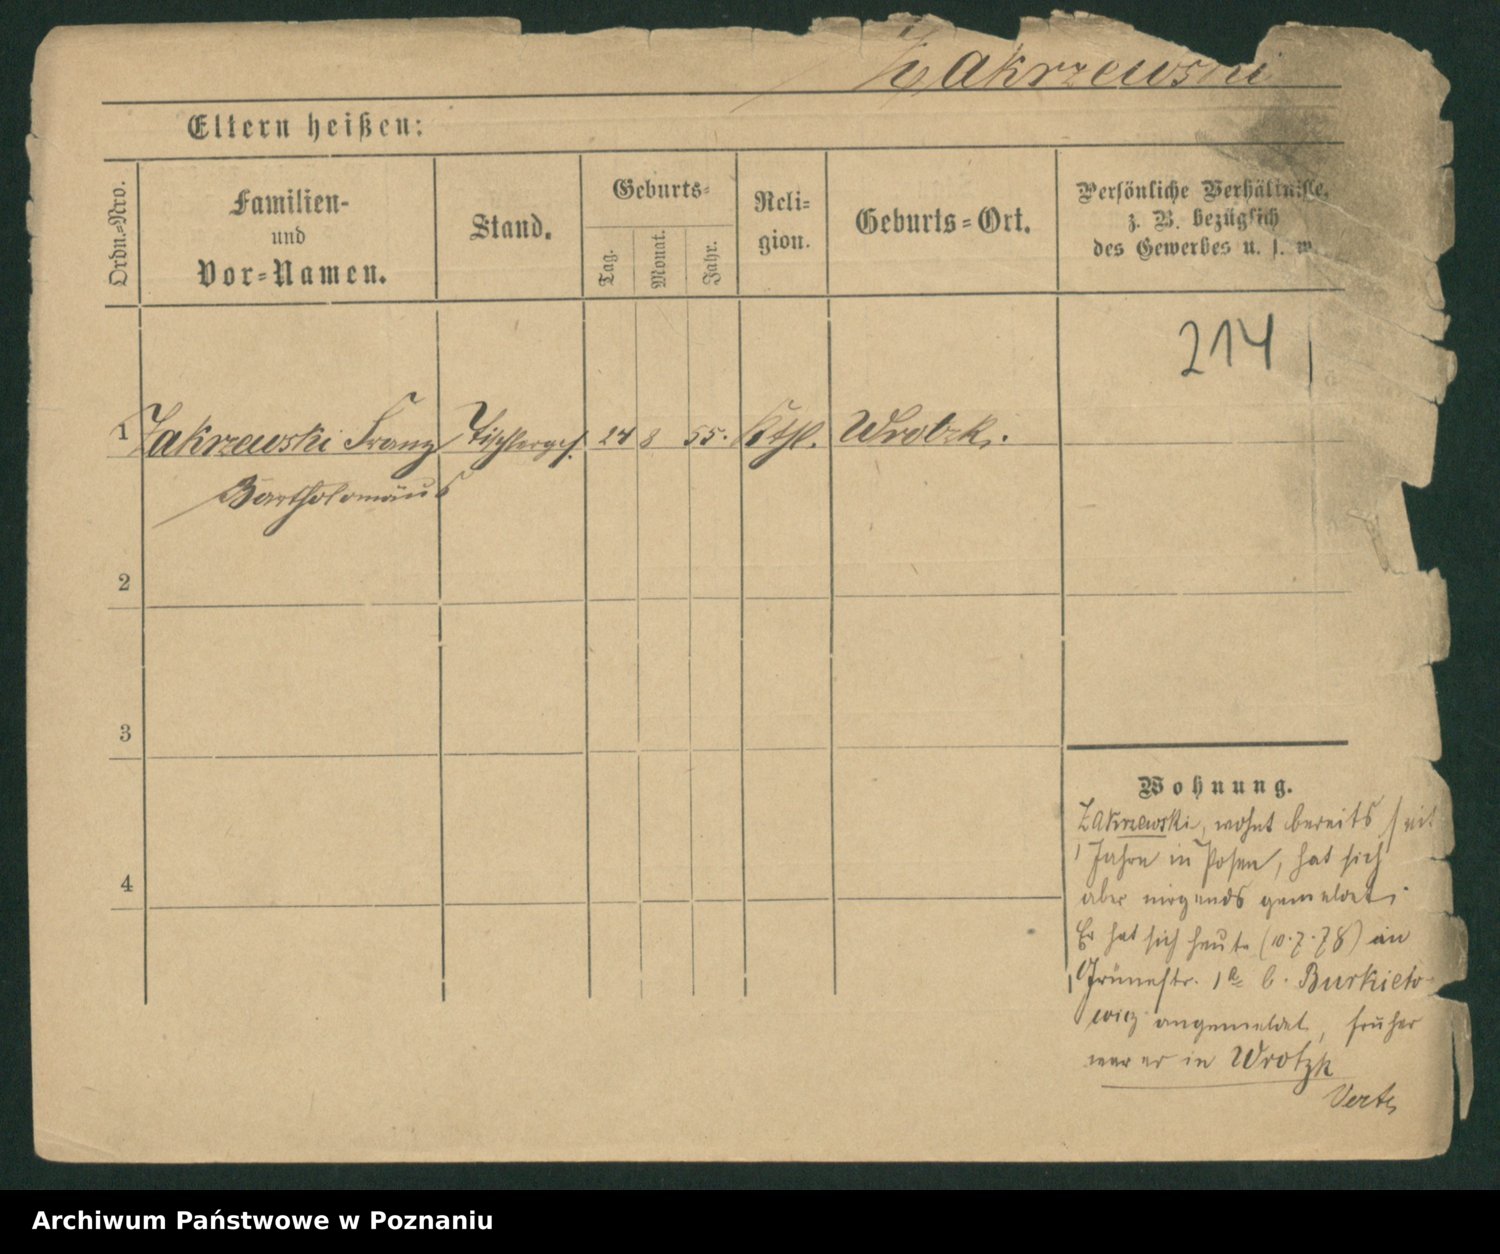 Zakrzewski
Eltern heißen:
Ordn.-Nro.
Familien-
und
Vor-Namen.
Stand.
Geburts-
Tag.
Monat.
Jahr.
Reli-
gion.
Geburts-Ort.
Persönliche Verhältnisse,
z. B. bezüglich
des Gewerbes u. s. w.
214
1 Zakrzewski Franz Tischlerges. 24 8 55. Kthl.
Bartholomäus
2
3
4
Wohnung.
Zakrzewski, wohnt bereits seit
1 Jahre in Posen, hat sich
aber nirgends gemeldet.
Er hat sich heute (10.7.78) in
Grünestr. 1 b. Burkieto-
wicz angemeldet, früher
war er in Wrotzk
Archiwum Państwowe w Poznaniu